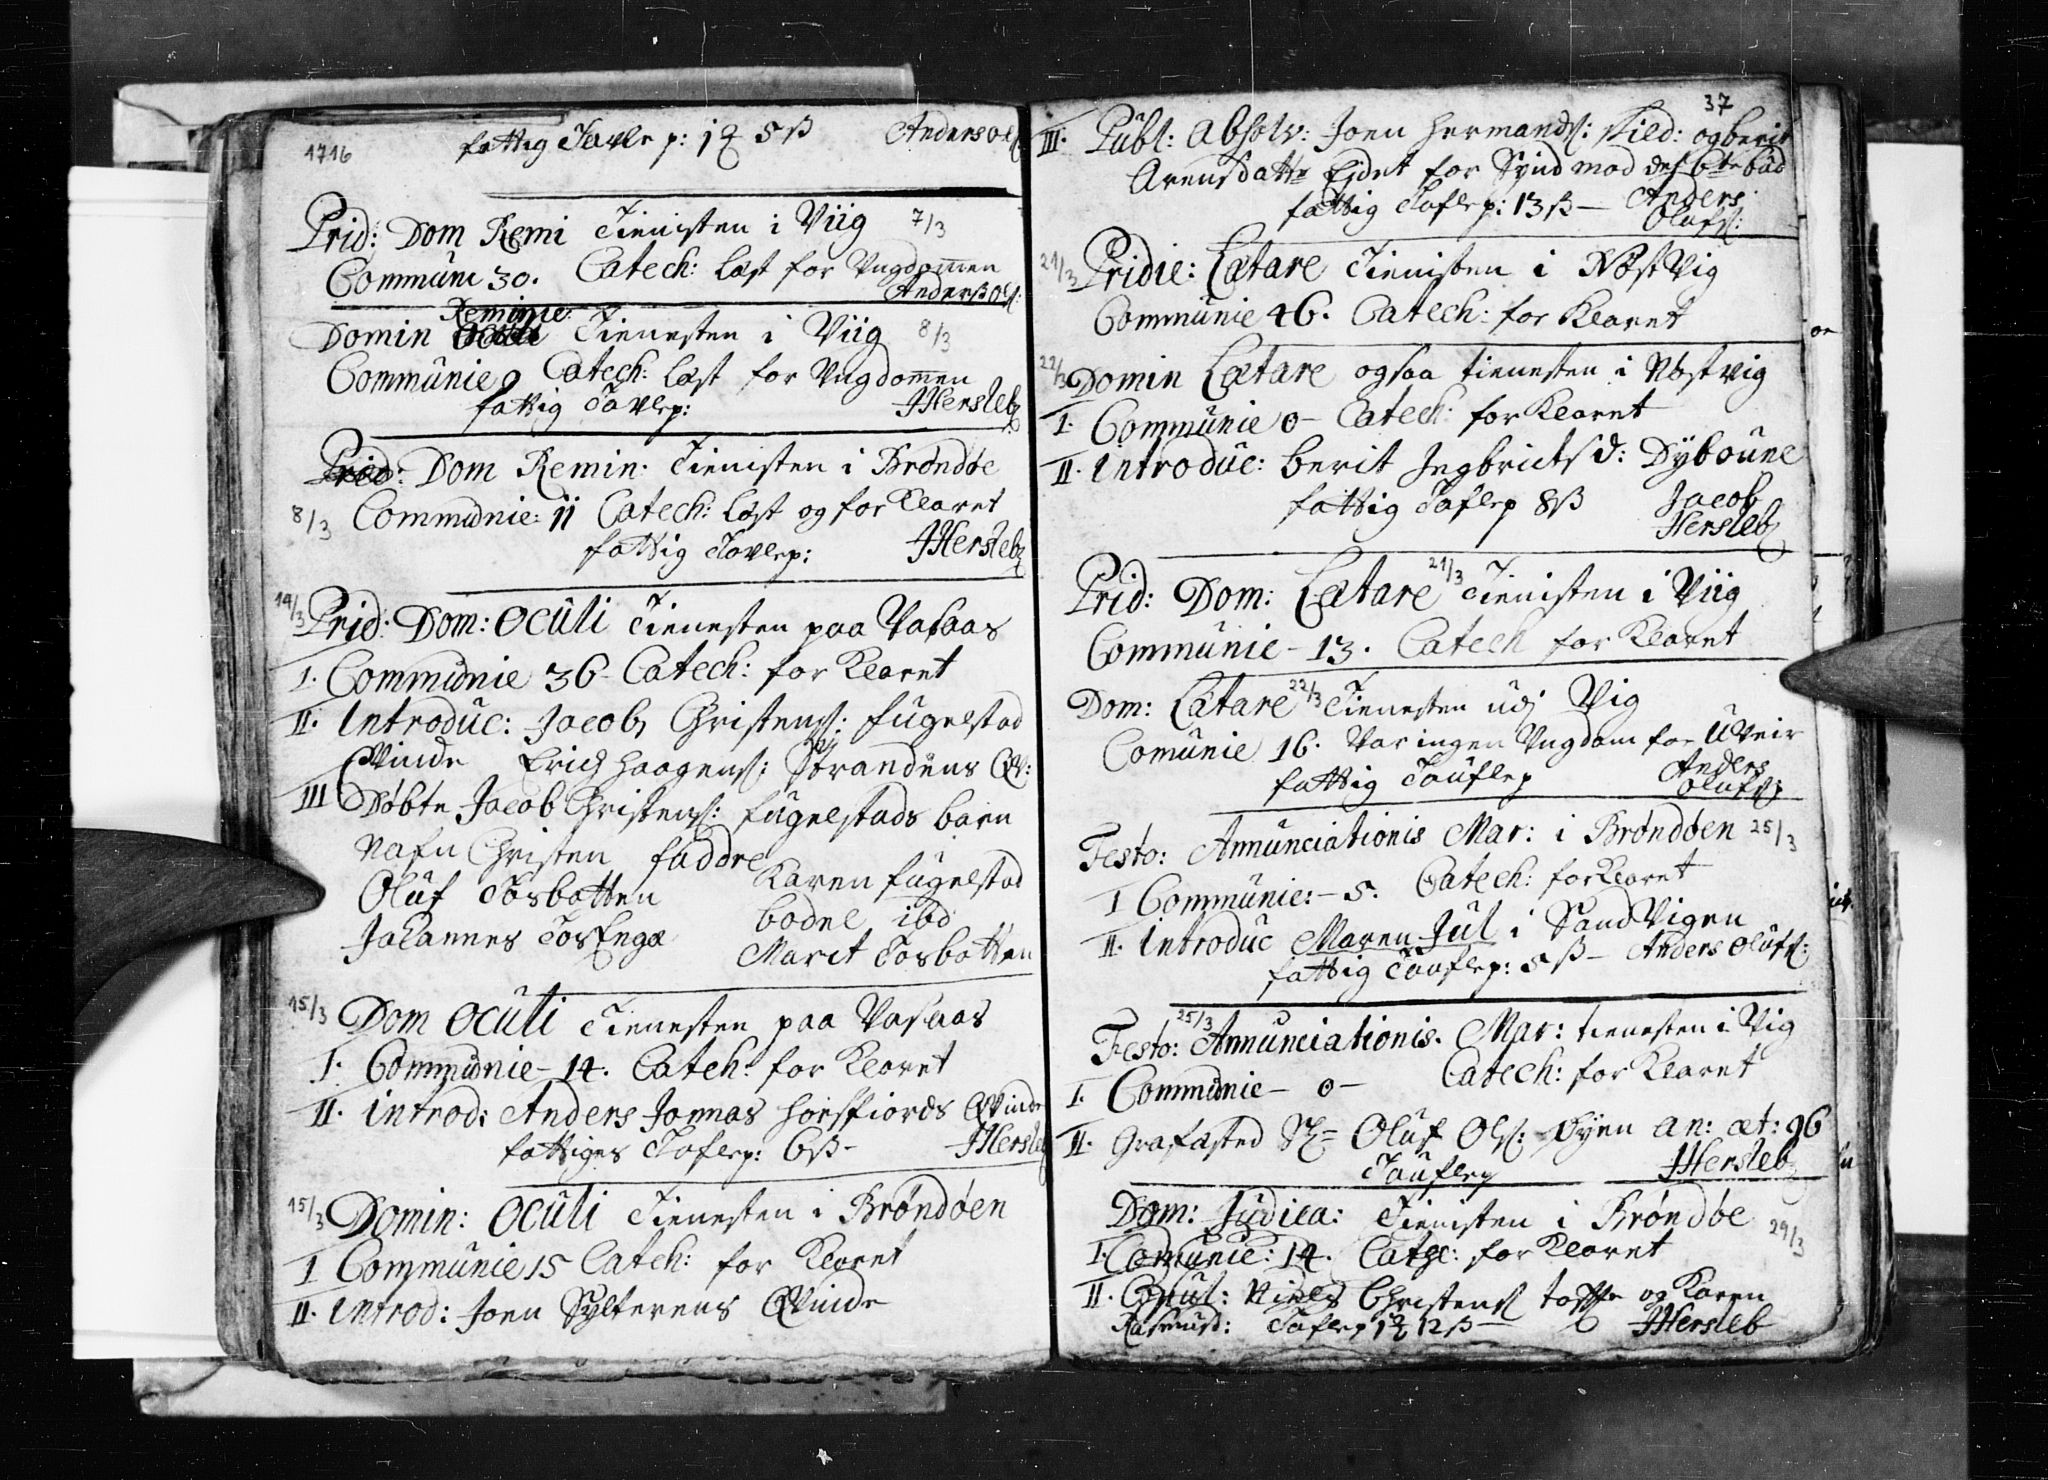 1716
fattig Tavle p: 1 ℥ 5 ß Anders Ols:
Prid: Dom Remi Tienisten i Viig 7/3
Commun 30. Catech: læst for Ungdommen
Anders Ols:
Reminic:
Domin Tienesten i Viig 8/3
Communie 9 Catech: læst for Ungdommen
fattig Tavlep: JHersleb
Prid: Dom Remin. Tienisten i Brøndøe
8/3 Communie: 11 Catech: læst og forklaret
fattig Tavlep: JHersleb
14/3 Prid: Dom: Oculi Tienesten paa Vasaas
I. Communie 36 - Catech: forklaret
II. Introduc: Jacob Christens: fugelstad
QVinde Erich Haagens: Strandens QV:
III Døbte Jacob Christens: fugelstads barn
Nafn Christen faddre
Karen fugelstad
Oluf Tosbotten
bodel ibd
Johannes TosEngæ
Marit Tosbotten
15/3 Dom Oculi Tienesten paa Vasaas
I. Communie - 14. Cateh: forklaret
II. introd: Anders Jonnas horsfiords QVinde
fattiges Taflep: 6 ß - JHersleb
15/3 Domin: Oculi Tienesten i Brøndøen
I Communie 15 Cateh: forklaret
II. introd: Joen Sylterens QVinde
37
III. Publ: Absolv: Joen Hermands: skild: og berit
Arensdatter Eidet for Synd mod det 6te bud
fattig Taflep: 13 ß - Anders
Olufs:
21/3 Pridie: Lætare Tienisten i Nøstvig
Communie 46. Catech: forklaret
22/3 Domin Lætare ogsaa tienesten i Nøstvig
I. Communie 0 - Catech: forklaret
II. introduc: berit Jngbrictsd: Dyboune
fattig Taflep 8 ß Jacob
Hersleb
Prid: Dom: Lætare 21/3 Tienisten i Viig
Communie - 13. Catech forklaret
Dom: Lætare 22/3 Tienesten udj Vig
Comunie 16. Var ingen Ungdom for UVeir
fattig Tauflep Anders
Olufs:
Festo: Annunciationis Mar: i Brøndøen 25/3
I Communie: - 5. Catech: forklaret
II. introduc Maren Jul i SandVigen
fattig Tauflep: 5 ß - Anders Olufs:
25/3
Festo: Annunciationis. Mar: tienesten i Vig
I. Communie - 0 - Catech: forklaret
II. grafæsted Sl= Oluf Ols: Øyen an: æt: 96
Tauflep JHersleb
Dom: Judica: Tienisten i Brøndøe 29/3
I. Comunie: 14. Cathe: forklaret
II. Copul: Niels Christens tofte og Karen
Rasmusd: Taflep 1 ℥ 12 ß JHersleb